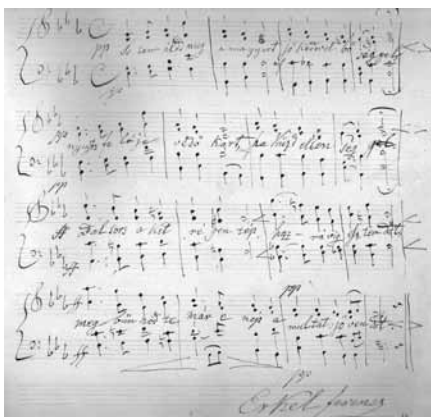 pp Isten áldd meg a magyart jó kedvvel bő séggel
pp
pp nyujts feléje védő kart ha küzd ellen ség gel
pp
ff Balsors a kit régen tép hozz rá víg esztendőt
ff
ff pp
meg bűnhődte már e nép a multat jövendőt
ff
pp
Erkel Ferencz